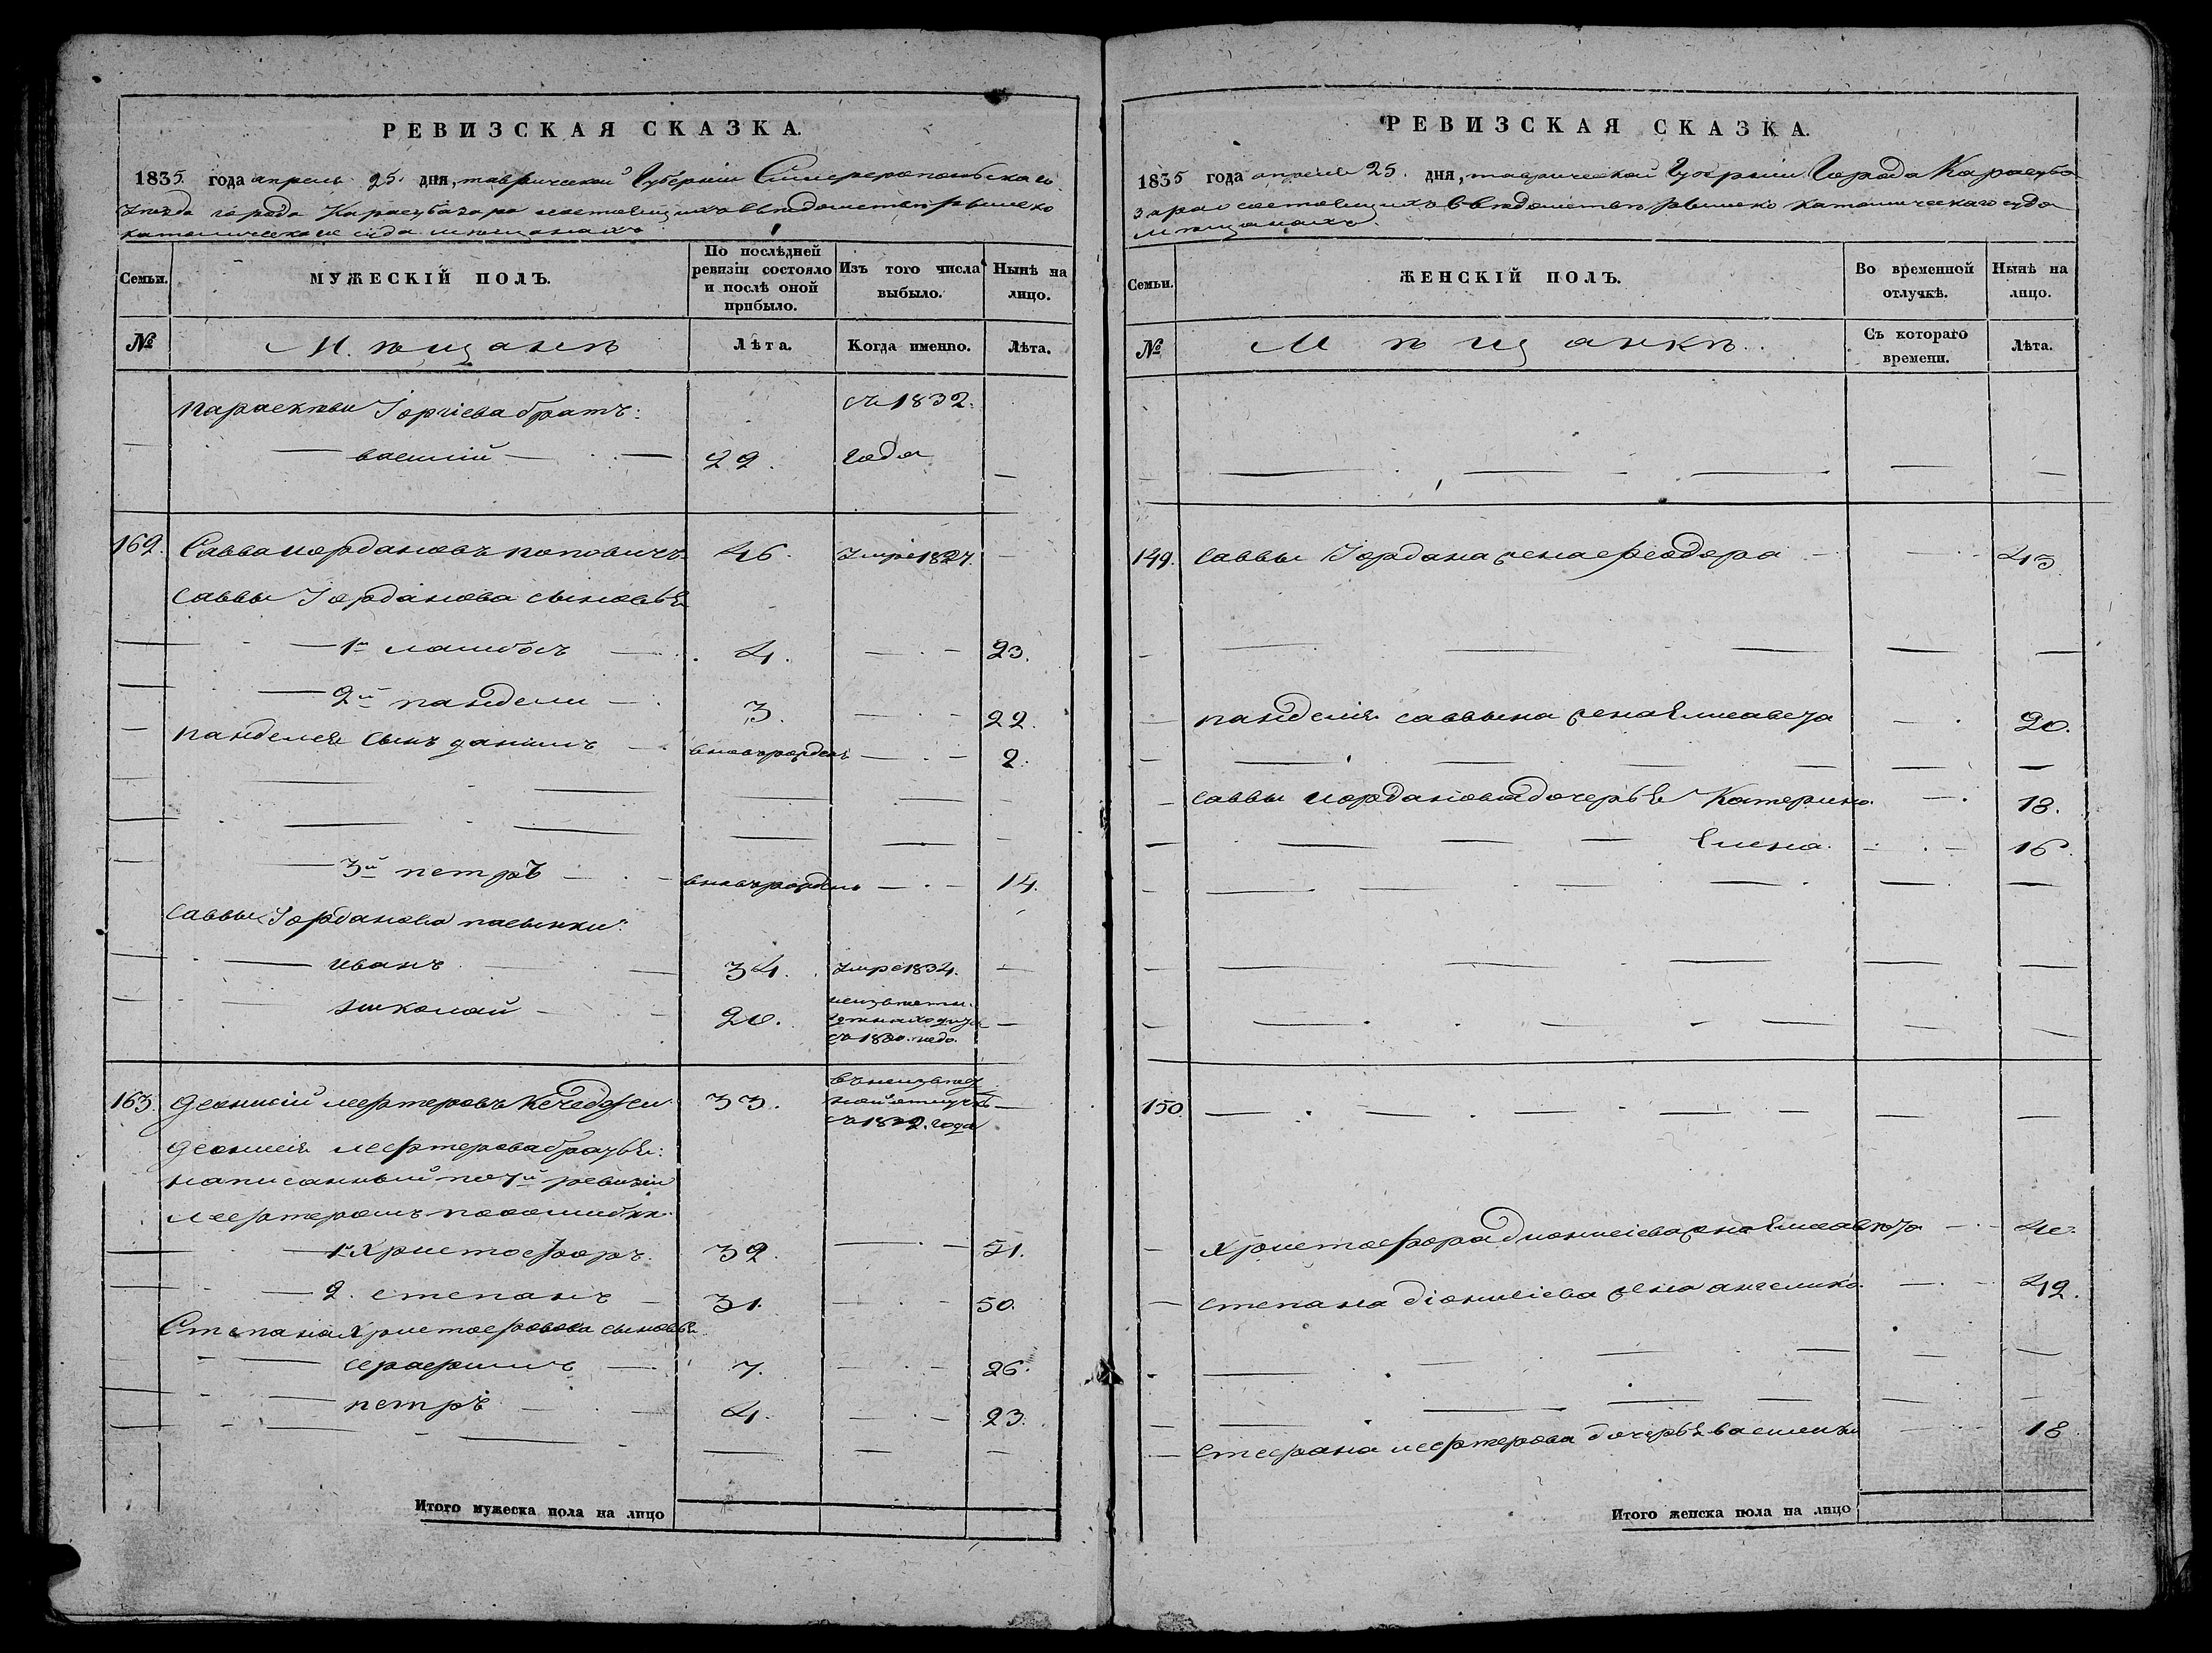 РЕВИЗСКАЯ СКАЗКА.
1835 года апрель 25 дня, таврической Губернии Симферопольскаго
Уезда города Карасубазара состоящихъ въ ведомстве римско
католическаго суда мещанахъ
Семьи. МУЖЕСКІЙ ПОЛЪ. По послѣдней ревизіи состояло и послѣ оной прибыло. Изъ того числа выбыло. Нынѣ на лицо.
№ Мѣщанѣ Лѣта. Когда именно. Лѣта.
Параскевы Іоргіева братъ: съ 1832.
василій 29. года
162. Савва иордановъ поповичъ 46. Умре 1827.
Саввы Іорданова сыновья
1й 4. 23.
2й пандели 3. 22.
панделея сынъ даніилъ вновь рожденъ 2.
3й петръ вновь рожденъ 14.
Саввы Іорданова пасынки:
иванъ 34. Умре 1834.
николай 20. неизвестн.
где находится
съ 1830. года
163. деонисій 33. въ неизвест
ной отлучке
съ 1832. года
деонисія братья:
написанный по 7й ревизіи
по ошибке
1й Христофоръ 32. 51.
2. степанъ 31. 50.
Степана Христофорова сыновья
серафимъ 7. 26.
петръ 4. 23.
Итого мужеска пола на лицо
РЕВИЗСКАЯ СКАЗКА.
1835 года апреля 25. дня, таврической Губерніи Города Карасуба
зара состоящихъ въ ведомстве римско католическаго суда
мещанахъ.
Семьи. ЖЕНСКІЙ ПОЛЪ. Во временной отлучкѣ. Нынѣ на лицо.
№ Мѣщанкѣ. Съ котораго времени. Лѣта.
149. саввы Іордана жена феодора 43.
панделія саввина жена Елисавета 20.
саввы иорданова дочерья Катерина 18.
Елена. 16.
150.
Христофора дионисіева жена Елисавета
степана діонисіева жена ангелика 42.
стефана дочерья василики 18
Итого женска пола на лицо